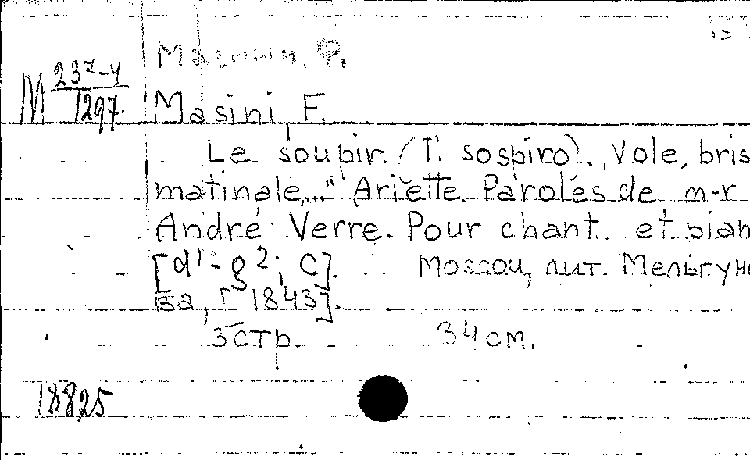 Мазини, Ф.
М 23 2-4 / 1297
Masini, F.
Le soupir. (I. sospiro). „Vole, bris
matinale..." Ariette. Paroles de m-r
André Verre. Pour chant. et pian
[d¹-g²; C]. Moscou, лит. Мельгуно
ва, [1843].
3 стр. 34 см.
18825